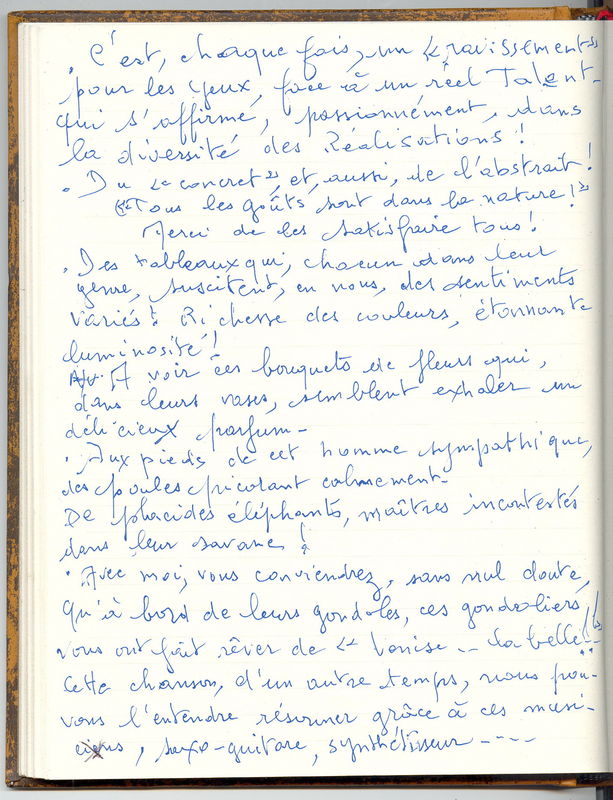 . C'est, chaque fois, un « ravissement »
pour les yeux, face à un réel Talent-
qui s'affirme, passionnément, dans
la diversité des Réalisations !
. Du « concret », et, aussi, de l'abstrait !
« Tous les goûts sont dans la nature ! »
Merci de les satisfaire tous !
. Des tableaux qui, chacun dans leur
genre, suscitent, en nous, des sentiments
variés ! Richesse des couleurs, étonnante
luminosité !
A voir ces bouquets de fleurs qui,
dans leurs vases, semblent exhaler un
délicieux parfum-
. Aux pieds de cet homme sympathique,
des poules picorant calmement-
De placides éléphants, maîtres incontestés
dans leur savane !
. Avec moi, vous conviendrez, sans nul doute,
Qu'à bord de leurs gondoles, ces gondoliers,
vous ont fait rêver de « Venise -- la belle !! »
Cette chanson, d'un autre temps, nous pou-
vons l'entendre résonner grâce à ces musi-
ciens, saxo-guitare, synthétiseur ----